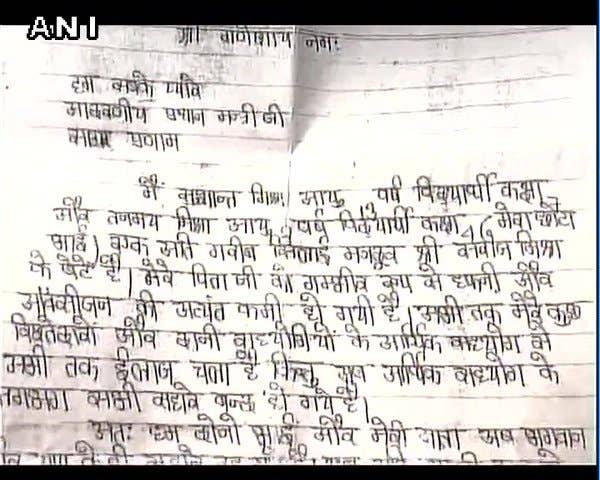 ANI
श्री गणेशाय नमः
हम सबके प्रिय
माननीय प्रधान मन्त्री जी
सादर प्रणाम
मैं सुशान्त मिश्रा आयु वर्ष विद्यार्थी कक्षा
और तनमय मिश्रा आयु वर्ष विद्यार्थी कक्षा (मेरा छोटा
भाई) एक अति गरीब सिलाई मजदूर श्री सरोज मिश्रा
के बेटे है। मेरे पिता जी को गम्भीर रूप से और
की अत्यंत कमी हो गयी है। अभी तक मेरे कुछ
रिश्तेदारों और दानी सहयोगियों के आर्थिक सहयोग से
अभी तक ईलाज चला है किन्तु अब आर्थिक सहयोग के
लगभग सभी सहारे बन्द हो गये है।
अतः हम दोनो भाई और मेरी माता अब भगवान